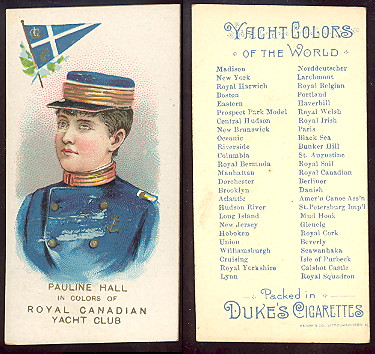 PAULINE HALL
IN COLORS OF
ROYAL CANADIAN
YACHT CLUB
YACHT COLORS
OF THE WORLD
Madison
New York
Royal Harwich
Boston
Eastern
Prospect Park Model
Central Hudson
New Brunswick
Oceanic
Riverside
Columbia
Royal Bermuda
Manhattan
Dorchester
Brooklyn
Atlantic
Hudson River
Long Island
New Jersey
Hoboken
Union
Williamsburgh
Cruising
Royal Yorkshire
Lynn
Norddeutscher
Larchmont
Royal Belgian
Portland
Haverhill
Royal Welsh
Royal Irish
Paris
Black Sea
Bunker Hill
St. Augustine
Royal Sail
Royal Canadian
Berliner
Danish
Amer'n Canoe Ass'n
St. Petersburg Imp'l
Mud Hook
Glencig
Royal Cork
Beverly
Seawanhaka
Isle of Purbeck
Calshot Castle
Royal Squadron
Packed in
DUKE'S CIGARETTES